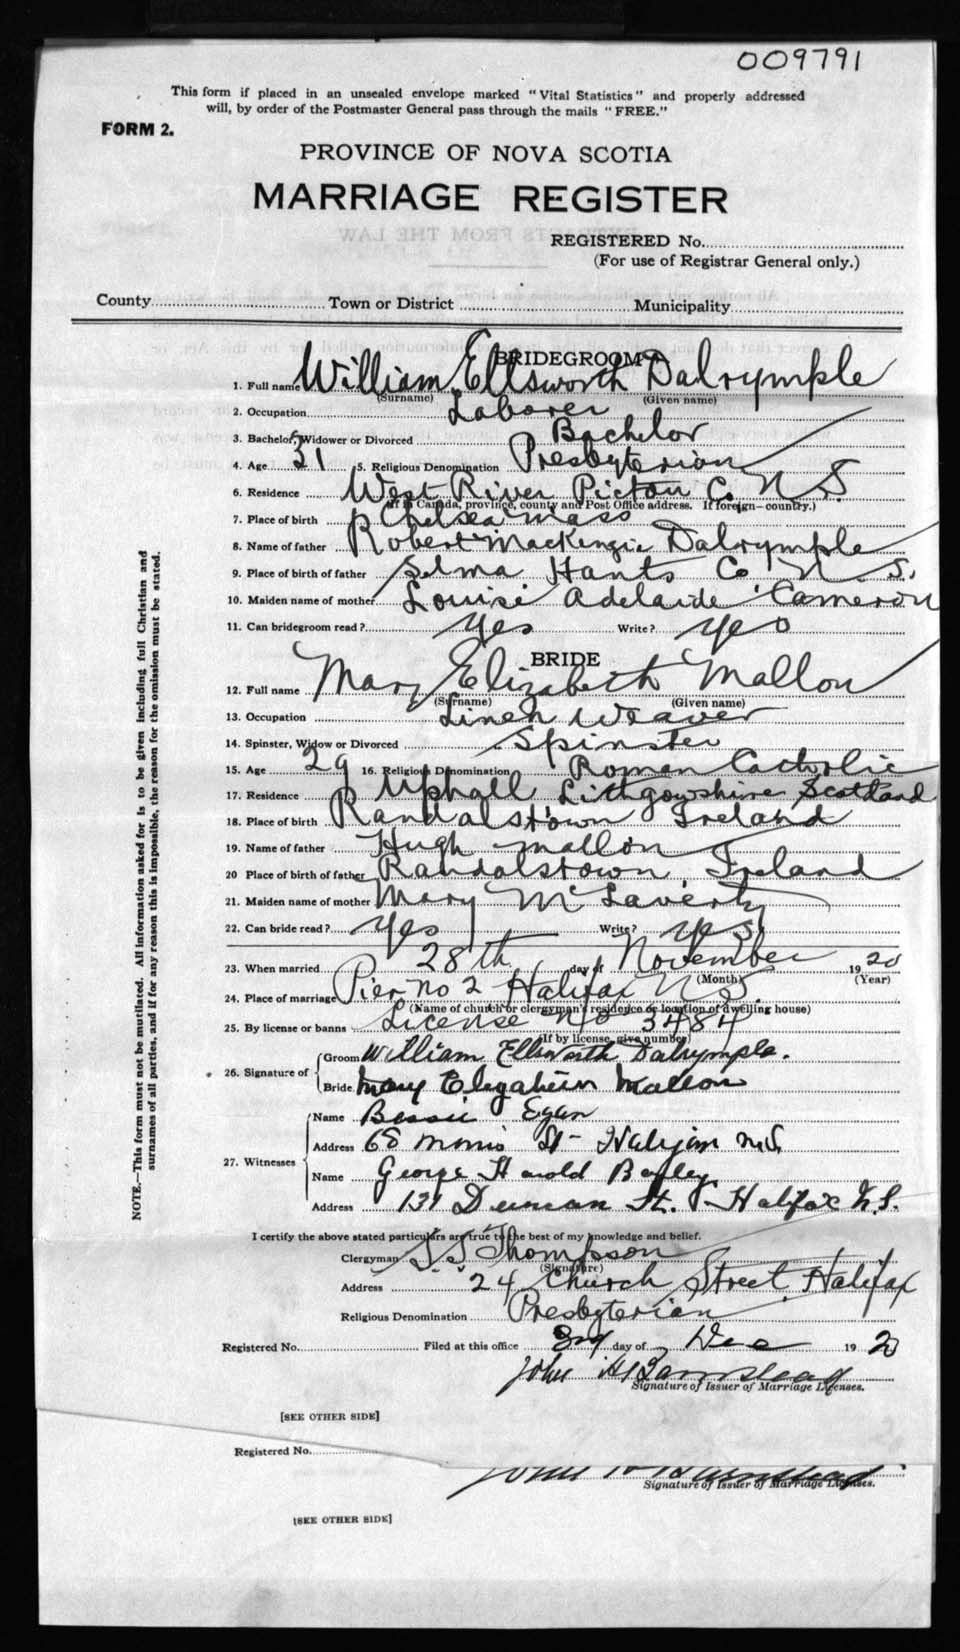 009791
This form if placed in an unsealed envelope marked "Vital Statistics" and properly addressed
will, by order of the Postmaster General pass through the mails "FREE."
FORM 2.
PROVINCE OF NOVA SCOTIA
MARRIAGE REGISTER
REGISTERED No.
(For use of Registrar General only.)
County Town or District Municipality
BRIDEGROOM
1. Full name William Ellsworth Dalrymple
(Surname) (Given name)
2. Occupation Laborer
3. Bachelor, Widower or Divorced Bachelor
4. Age 31 5. Religious Denomination Presbyterian
6. Residence West River Pictou Co. N S
(If in Canada, province, county and Post Office address. If foreign—country.)
7. Place of birth Chelsea Mass
8. Name of father Robert MacKenzie Dalrymple
9. Place of birth of father Selma Hants Co. N. S.
10. Maiden name of mother Louise Adelaide Cameron
11. Can bridegroom read? Yes Write? Yes
BRIDE
12. Full name Mary Elizabeth Mallon
(Surname) (Given name)
13. Occupation Linen Weaver
14. Spinster, Widow or Divorced Spinster
15. Age 29 16. Religious Denomination Roman Catholic
17. Residence Uphall Lithgowshire Scotland
18. Place of birth Randalstown Ireland
19. Name of father Hugh Mallon
20 Place of birth of father Randalstown Ireland
21. Maiden name of mother Mary McLaverty
22. Can bride read? Yes Write? Yes
23. When married 28th day of November 1920
(Month) (Year)
24. Place of marriage Pier No 2 Halifax N S.
(Name of church or clergyman's residence or location of dwelling house)
25. By license or banns License No 3484
(If by license, give number)
26. Signature of Groom William Ellsworth Dalrymple.
Bride Mary Elizabeth Mallon
27. Witnesses
Name Bessie Egan
Address 68 Morris St - Halifax N.S.
Name George Harold Bayley
Address 131 Duncan St. - Halifax N.S.
I certify the above stated particulars are true to the best of my knowledge and belief.
Clergyman Thompson
(Signature)
Address 24 Church Street, Halifax
Religious Denomination Presbyterian
Registered No. Filed at this office 3rd day of Dec 1920
John H Barnstead
Signature of Issuer of Marriage Licenses.
[SEE OTHER SIDE]
Registered No.
John H Barnstead
Signature of Issuer of Marriage Licenses.
[SEE OTHER SIDE]
NOTE.—This form must not be mutilated. All information asked for is to be given including full Christian and
surnames of all parties, and if for any reason this is impossible, the reason for the omission must be stated.